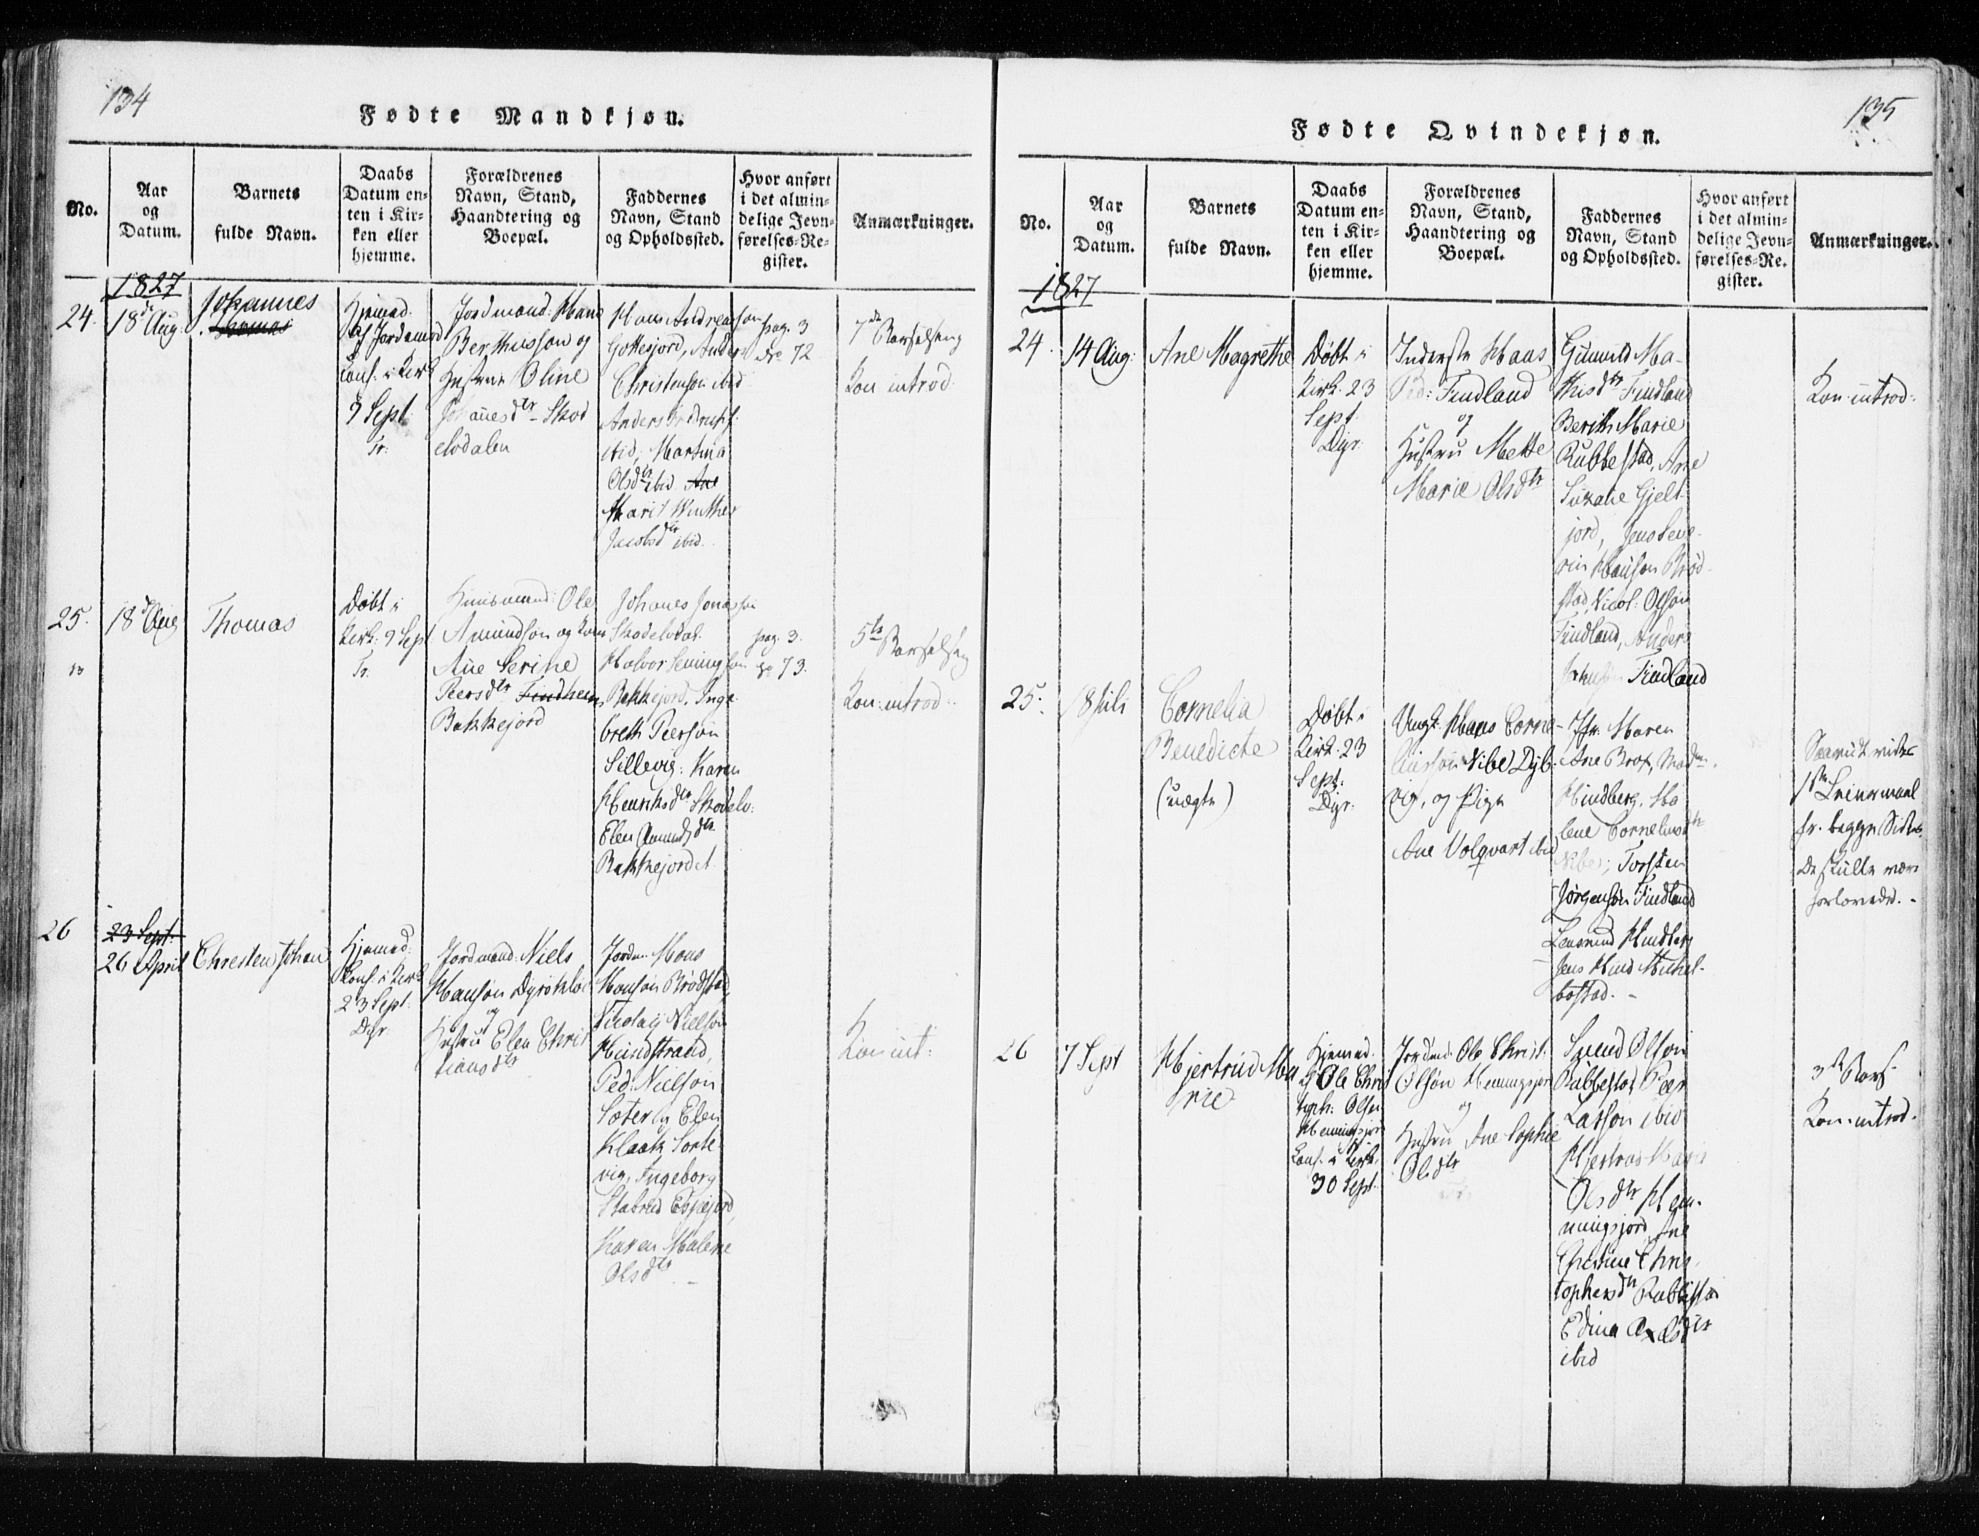 134
Fødte Mandkjøn.
No.
Aar
og
Datum.
Barnets
fulde Navn.
Daabs
Datum en-
ten i Kir-
ken eller
hjemme.
Forældrenes
Navn, Stand,
Haandtering og
Boepæl.
Faddernes
Navn, Stand
og Opholdssted.
Hvor anført
i det almin-
delige Jevn-
førelses-Re-
gister.
Anmærkninger.
1827
24.
18de Aug.
Johannes
Thomas
Hjemmed.
af Jordemod
Conf. i Kirk
9 Sept
Tr.
Jordmand: Hans
Berthusson og
Hustrue Oline
Johanesdtr Skod
elvdalen
Hans Andreasson
Gottesjord, Anders
Christenson ibid
Anders
ibid, Martina
Olsdtr ibid Ane
Marit Winther
Jacobsdtr ibid.
pag. 3
No 72
7de Barselseng
Kon introd:
25.
18de Aug
Thomas
Døbt i
Kirk: 9 Sept
Tr.
Huusmand: Ole
Amundson og Kone
Ane Serine
Peersdtr Findheim
Bakkejord
Johanes Jonasson
Skodelvdal.
Halvor Heningsen
Bakkejord, Inge
breth Peerson
Sillevig: Karen
Henriksdtr Skodelv:
Elen Amundsdtr
Bakkejordet
pag. 3.
No 73.
5te Barselseng
Kon: introd:
26
23 Sept:
26 April
Chresten Johan
Hjemmed:
Conf. i Kirk
23 Sept:
Dyr:
Jordmand: Niels
Hanson Dyrøkloe
og
Hustru Elen Christ
iansdtr
Jordm: Hans
Hanson Brødstad,
Nicolay Nielson
Hundstrand,
Ped: Nielson
Sæter, Elen
Klaak Sorte-
vig, Ingeborg
Espejord,
Karen Malene
Olsdtr –
Kon int:
135
Fødte Qvindekjøn.
No.
Aar
og
Datum.
Barnets
fulde Navn.
Daabs
Datum en-
ten i Kir-
ken eller
hjemme.
Forældrenes
Navn, Stand,
Haandtering og
Boepæl.
Faddernes
Navn, Stand
og Opholdssted.
Hvor anført
i det almin-
delige Jevn-
førelses-Re-
gister.
Anmærkninger.
1827
24.
14 Aug:
Ane Magrethe
Døbt i
Kirk: 23
Sept.
Dyr:
Inderste Hans
Ped: Findland
og
Hustru Mette
Marie Olsdtr
Gunild Ma-
thisdtr Findland
Berith Marie
Rubbestad, Ane
Suzane Gjelt-
jord, Jens Seve-
rin Hanson Brød-
stad, Nicol: Olson
Findland, Anders
Findland
Kon: introd:
25.
18 Juli
Cornelia
Benedicte
(uægte)
Døbt i
Kirk: 23
Sept:
Dyr:
Ungk: Hans Corne-
liusson Nibe Dyb-
vig, og Pige
Ane Volqvart ibid
Jfr. Maren
Ane Brox, Madm.
Hindberg, Ma
lene Corneliusdtr
Nibe, Torsten
Jørgenson Findland
Hindberg
Jens Hind Mickel-
bostad. –
1ste Leiermaal
for begge Sider.
De skulle være
forlovede. –
26
7 Sept
Hjertrud Ma
rie
Hjemmed.
af Ole Chris
toph: Olsen
Hemmingsjor
Conf. i Kirk.
30 Sept.
Jordmd: Ole Christ:
Olson Hemmingsjor
og
Hustru Ane Sophie
Olsdtr
Svend Olson
Rabbestad, Peer
Larson ibid
Hjertrud Marie
Olsdtr Hem-
mingsjord, Ane
Christine Chris-
tophersdtr Rabbesta
Edina Axelsdtr
ibid
3de Bars:
Kon: introd.